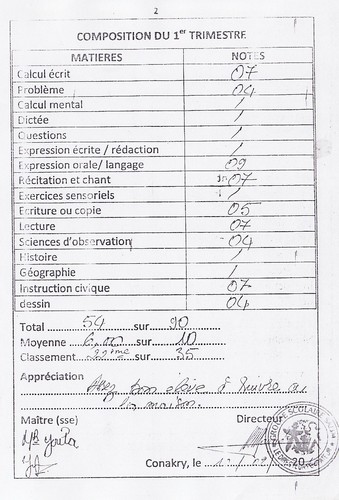 2
COMPOSITION DU 1er TRIMESTRE
MATIERES NOTES
Calcul écrit 07
Problème 04
Calcul mental /
Dictée /
Questions /
Expression écrite / rédaction /
Expression orale/ langage 09
Récitation et chant 07
Exercices sensoriels /
Ecriture ou copie 05
Lecture 07
Sciences d'observation 04
Histoire /
Géographie /
Instruction civique 07
dessin 04
Total 54 sur 90
Moyenne 6,00 sur 10
Classement 22ème sur 35
Appréciation Assez bon élève à suivre
la maison.
Maître (sse) Directeur
GROUPE SCOLAIRE
Conakry, le 20